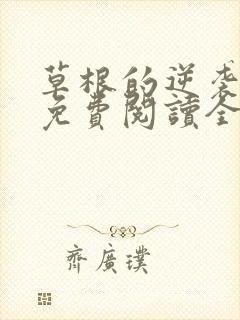 草根的逆袭
免費閱讀全
齊廣璞